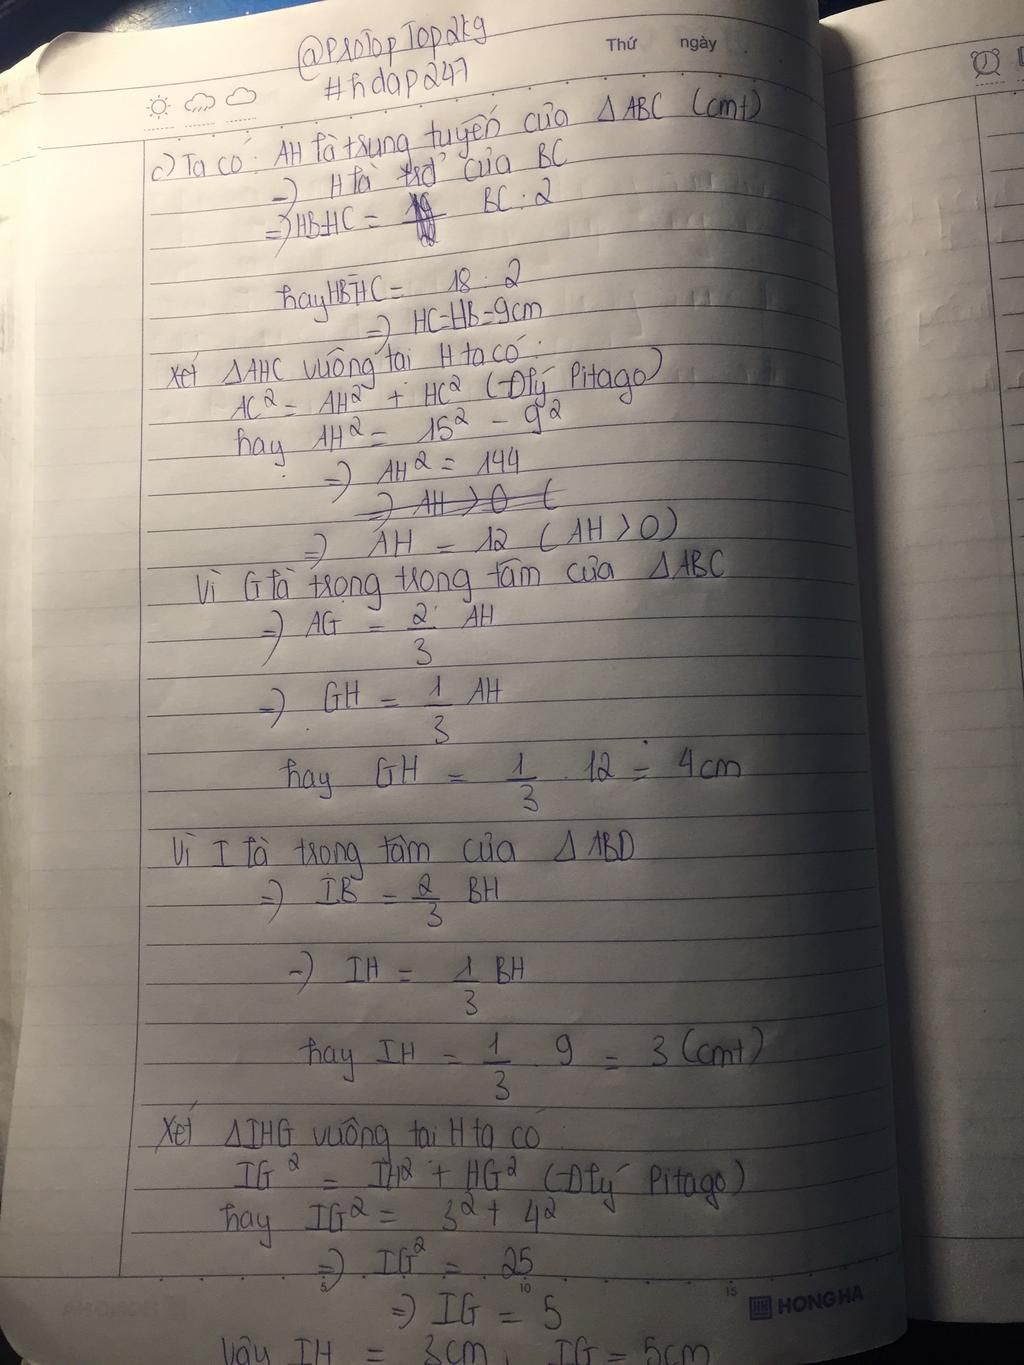 @ProTopTop2k9
Thứ ngày
#hdap247
c) Ta có: AH là trung tuyến của ΔABC (cmt)
=) H là trđ của BC
=) HB=HC = BC : 2
hay HB=HC = 18 : 2
=) HC=HB=9cm
Xét ΔAHC vuông tại H ta có:
AC² = AH² + HC² (Đlý Pitago)
hay AH² = 15² - 9²
=) AH² = 144
=) AH > 0 (
=) AH = 12 (AH > 0)
Vì G là trọng trong tâm của ΔABC
=) AG = 2/3 AH
=) GH = 1/3 AH
hay GH = 1/3 . 12 = 4cm
Vì I là trong tâm của ΔABD
=) IB = 2/3 BH
=) IH = 1/3 BH
hay IH = 1/3 . 9 = 3 (cmt)
Xét ΔIHG vuông tại H ta có
IG² = IH² + HG² (Đlý Pitago)
hay IG² = 3² + 4²
=) IG² = 25
5 10 15
HONG HA
=) IG = 5
Vậy IH = 3cm, IG = 5cm